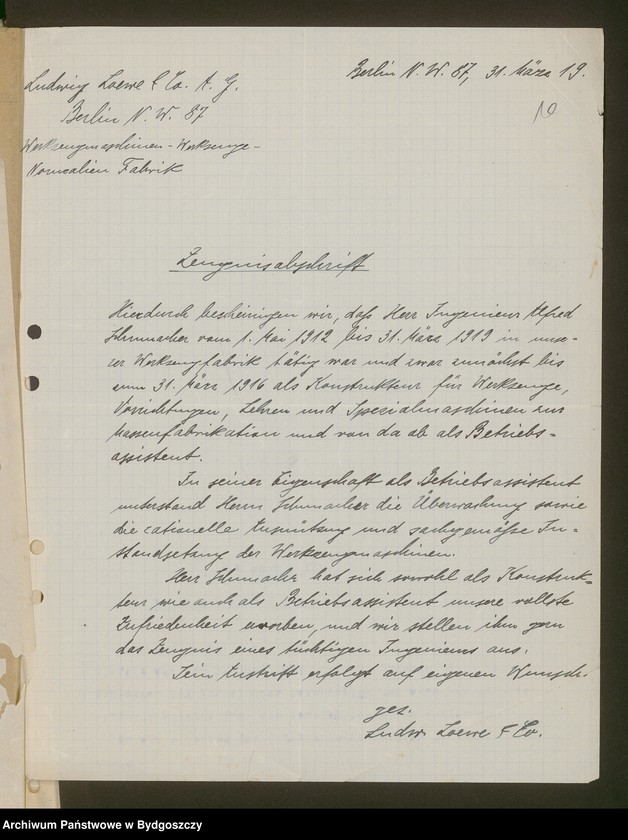 Ludwig Loewe & Co. A. G.
Berlin N. W. 87, 31. März 19.
Berlin N. W. 87
10
Werkzeugmaschinen - Werkzeuge -
Normalien Fabrik
Zeugnisabschrift
Hierdurch bescheinigen wir, daß Herr Ingenieur Alfred
Schumacher vom 1. Mai 1912 bis 31. März 1919 in unse-
rer Werkzeugfabrik tätig war und zwar zunächst bis
zum 31. März 1916 als Konstrukteur für Werkzeuge,
Vorrichtungen, Lehren und Spezialmaschinen zur
Massenfabrikation und von da ab als Betriebs-
assistent.
In seiner Eigenschaft als Betriebsassistent
unterstand Herrn Schumacher die Überwachung sowie
die rationelle Ausnützung und sachgemäße In-
standsetzung der Werkzeugmaschinen.
Herr Schumacher hat sich sowohl als Konstruk-
teur wie auch als Betriebsassistent unsere vollste
Zufriedenheit erworben, und wir stellen ihm gern
das Zeugnis eines tüchtigen Ingenieurs aus.
Sein Austritt erfolgt auf eigenen Wunsch.
gez.
Ludw. Loewe & Co.
Archiwum Państwowe w Bydgoszczy